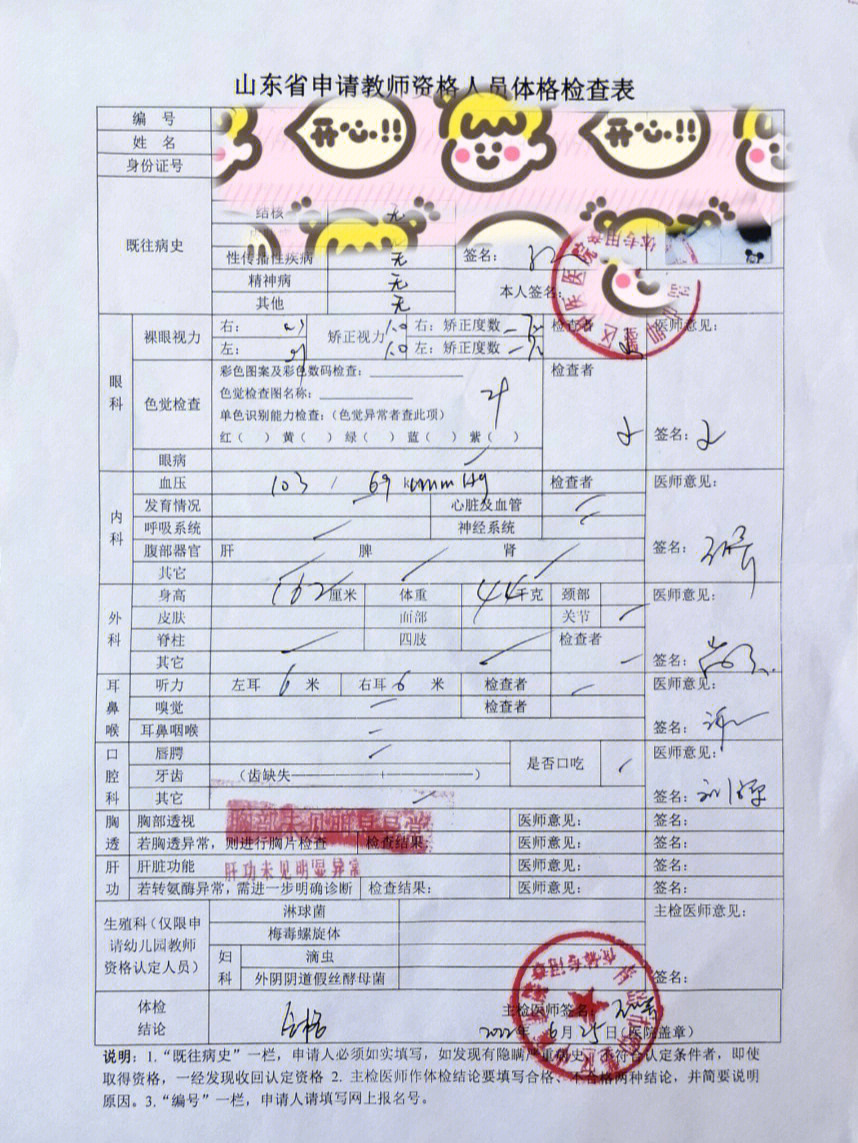 山东省申请教师资格人员体格检查表
编 号
姓 名
身份证号
开心!! 开心!!
既往病史
结核 无
性传播性疾病 无 签名：
精神病 无
其他 无 本人签名：
眼科
裸眼视力 右： 矫正视力 1.0 右：矫正度数 检查者 医师意见：
左： 1.0 左：矫正度数
色觉检查 彩色图案及彩色数码检查： 检查者
色觉检查图名称：
单色识别能力检查：（色觉异常者查此项）
红（ ） 黄（ ） 绿（ ） 蓝（ ） 紫（ ） 签名：
眼病
内科
血压 103 / 69 mmHg 检查者 医师意见：
发育情况 心脏及血管
呼吸系统 神经系统
腹部器官 肝 脾 肾 签名：
其它
外科
身高 162厘米 体重 44千克 颈部 医师意见：
皮肤 面部 关节
脊柱 四肢 检查者
其它 签名：
耳鼻喉
听力 左耳 6 米 右耳 6 米 检查者 医师意见：
嗅觉 检查者
耳鼻咽喉 签名：
口腔科
唇腭 是否口吃 医师意见：
牙齿 （齿缺失 ）
其它 签名：
胸透
胸部透视 胸部未见明显异常 医师意见： 签名：
若胸透异常，则进行胸片检查 检查结果： 医师意见： 签名：
肝功
肝脏功能 肝功未见明显异常 医师意见： 签名：
若转氨酶异常，需进一步明确诊断 检查结果： 医师意见： 签名：
生殖科（仅限申请幼儿园教师资格认定人员）
淋球菌 主检医师意见：
梅毒螺旋体
妇科 滴虫
外阴阴道假丝酵母菌 签名：
体检结论 合格 主检医师签名：
2022年 6月25日（医院盖章）
说明：1.“既往病史”一栏，申请人必须如实填写，如发现有隐瞒严重病史，不符合认定条件者，即使
取得资格，一经发现收回认定资格 2. 主检医师作体检结论要填写合格、不合格两种结论，并简要说明
原因。3.“编号”一栏，申请人请填写网上报名号。